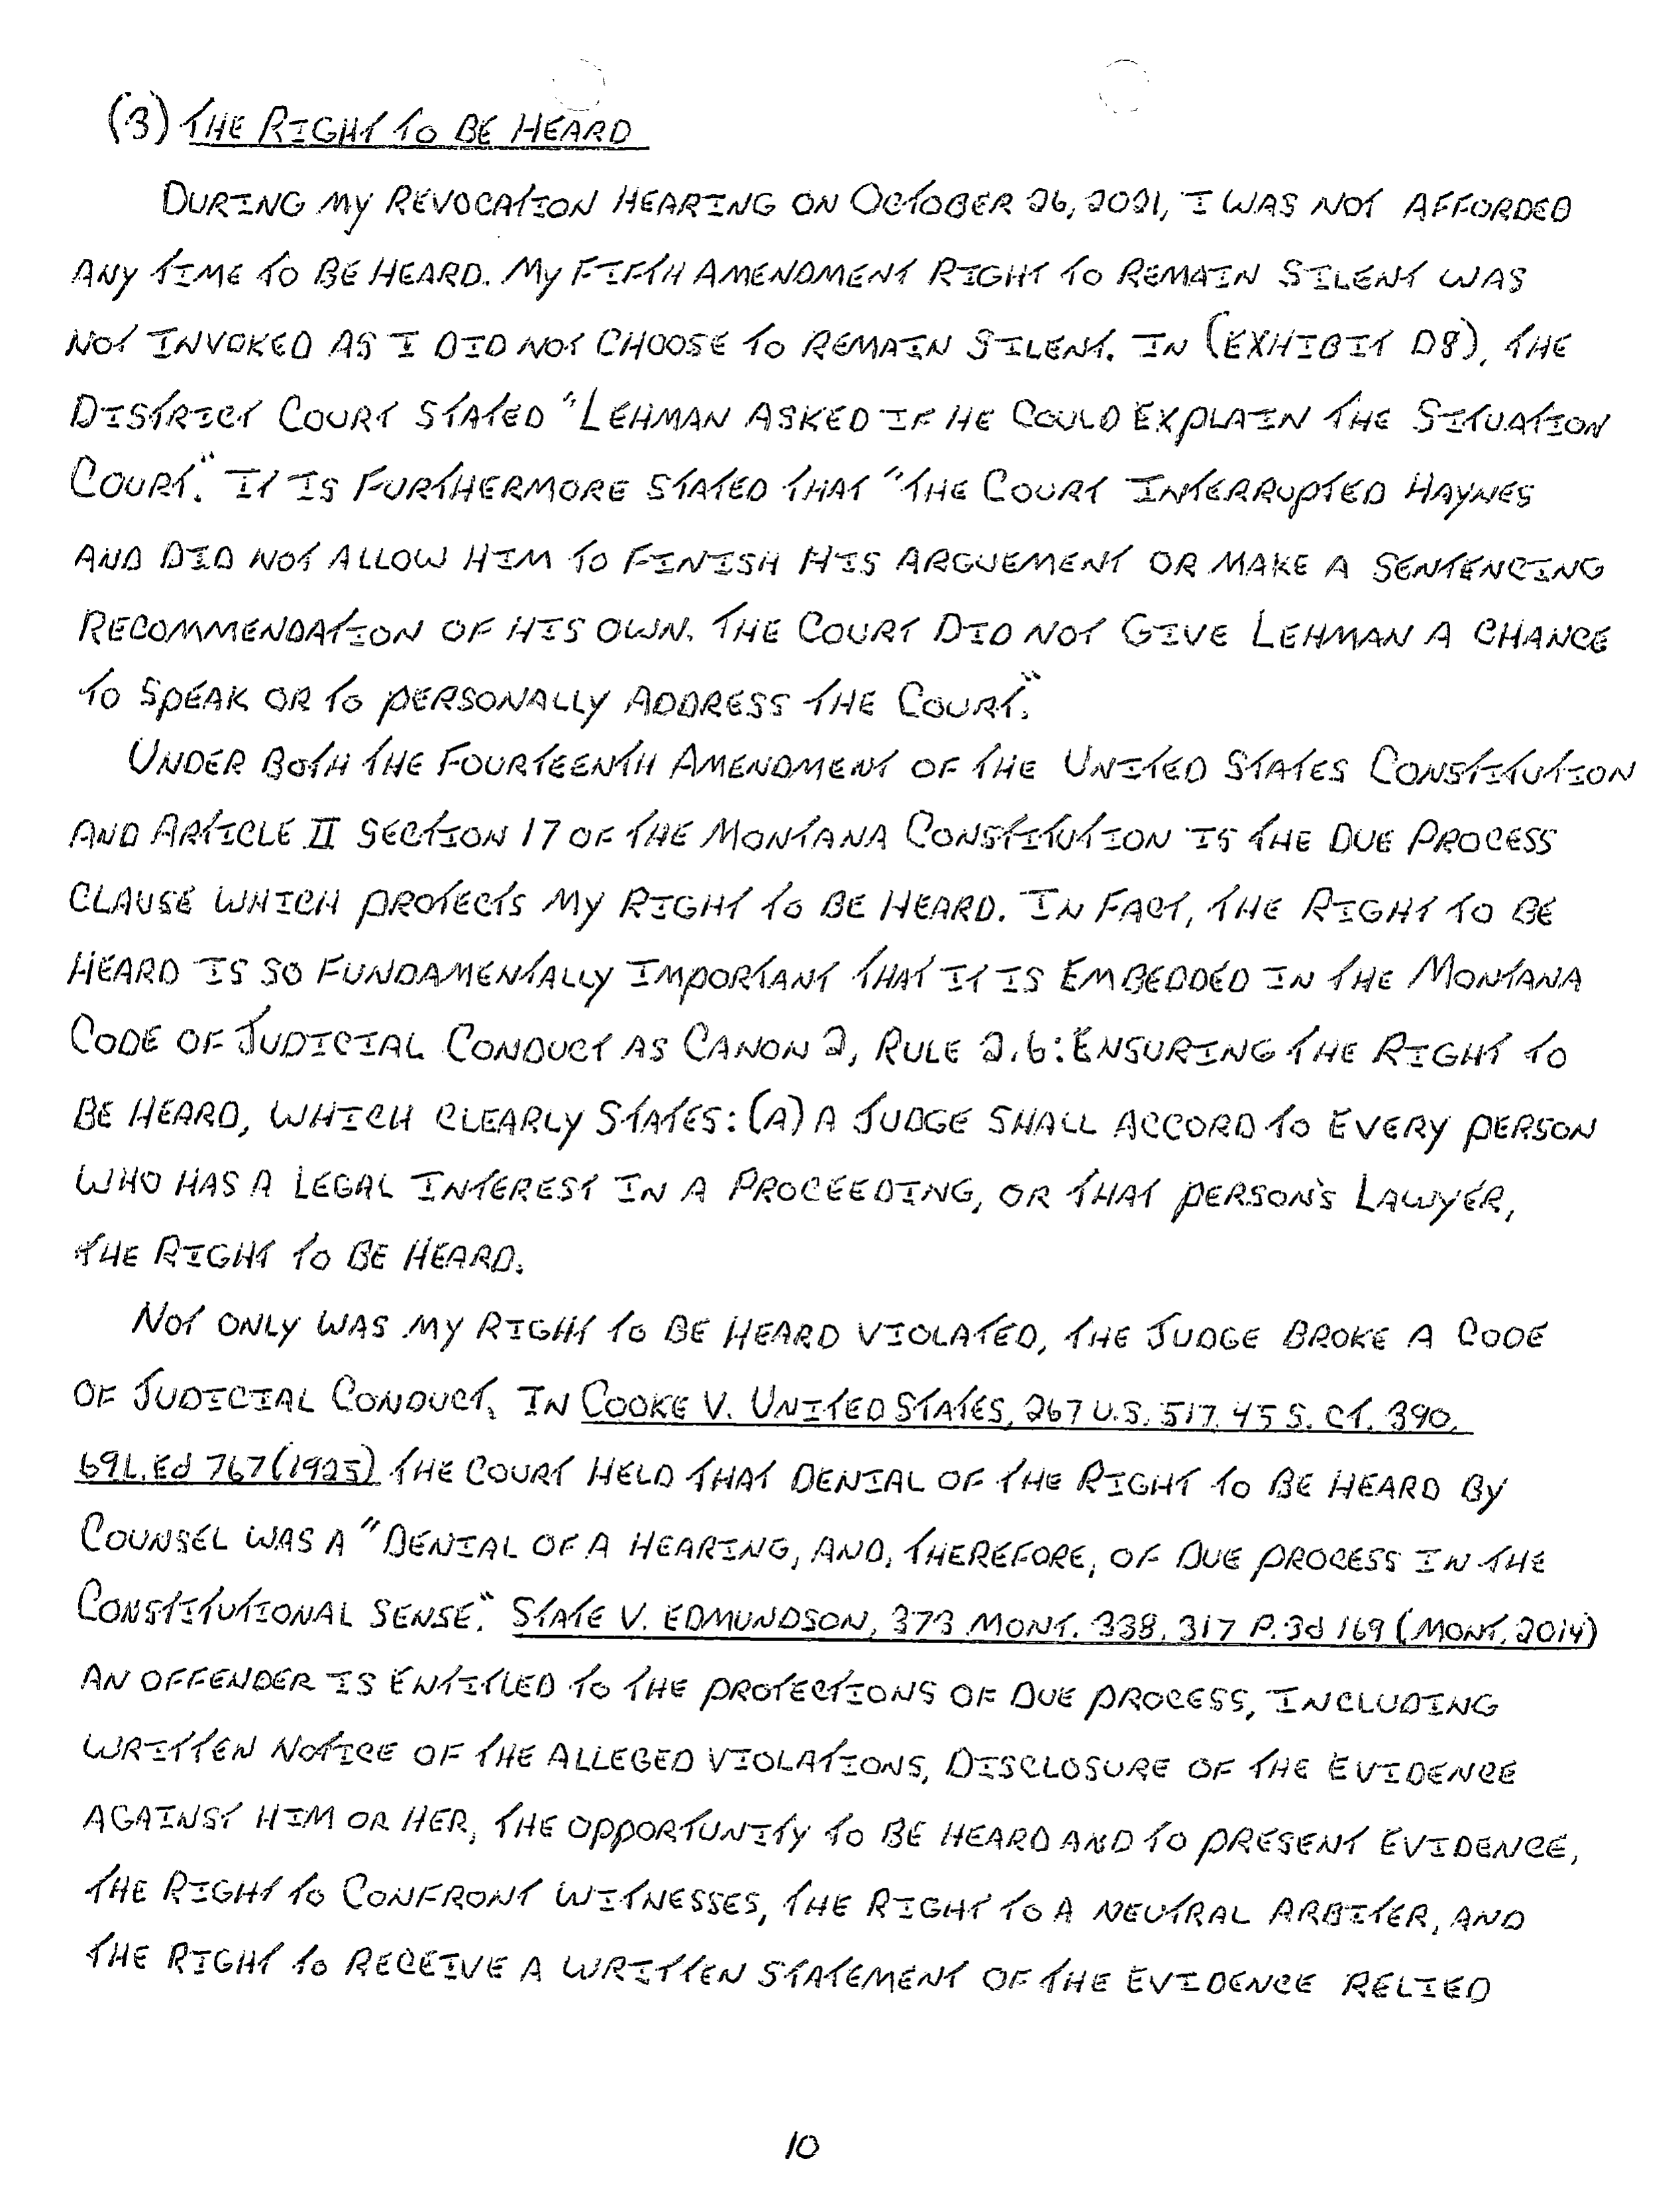 (3) THE RIGHT TO BE HEARD
DURING MY REVOCATION HEARING ON OCTOBER 26, 2021, I WAS NOT AFFORDED
ANY TIME TO BE HEARD. MY FIFTH AMENDMENT RIGHT TO REMAIN SILENT WAS
NOT INVOKED AS I DID NOT CHOOSE TO REMAIN SILENT. IN (EXHIBIT D8), THE
DISTRICT COURT STATED "LEHMAN ASKED IF HE COULD EXPLAIN THE SITUATION
COURT." IT IS FURTHERMORE STATED THAT "THE COURT INTERRUPTED HAYNES
AND DID NOT ALLOW HIM TO FINISH HIS ARGUEMENT OR MAKE A SENTENCING
RECOMMENDATION OF HIS OWN. THE COURT DID NOT GIVE LEHMAN A CHANCE
TO SPEAK OR TO PERSONALLY ADDRESS THE COURT."
UNDER BOTH THE FOURTEENTH AMENDMENT OF THE UNITED STATES CONSTITUTION
AND ARTICLE II SECTION 17 OF THE MONTANA CONSTITUTION IS THE DUE PROCESS
CLAUSE WHICH PROTECTS MY RIGHT TO BE HEARD. IN FACT, THE RIGHT TO BE
HEARD IS SO FUNDAMENTALLY IMPORTANT THAT IT IS EMBEDDED IN THE MONTANA
CODE OF JUDICIAL CONDUCT AS CANON 2, RULE 2.6: ENSURING THE RIGHT TO
BE HEARD, WHICH CLEARLY STATES: (A) A JUDGE SHALL ACCORD TO EVERY PERSON
WHO HAS A LEGAL INTEREST IN A PROCEEDING, OR THAT PERSON'S LAWYER,
THE RIGHT TO BE HEARD.
NOT ONLY WAS MY RIGHT TO BE HEARD VIOLATED, THE JUDGE BROKE A CODE
OF JUDICIAL CONDUCT. IN COOKE V. UNITED STATES, 267 U.S. 517, 45 S. CT. 390,
69 L.Ed 767 (1925) THE COURT HELD THAT DENIAL OF THE RIGHT TO BE HEARD BY
COUNSEL WAS A "DENIAL OF A HEARING, AND, THEREFORE, OF DUE PROCESS IN THE
CONSTITUTIONAL SENSE." STATE V. EDMUNDSON, 373 MONT. 338, 317 P.3d 169 (MONT. 2014)
AN OFFENDER IS ENTITLED TO THE PROTECTIONS OF DUE PROCESS, INCLUDING
WRITTEN NOTICE OF THE ALLEGED VIOLATIONS, DISCLOSURE OF THE EVIDENCE
AGAINST HIM OR HER, THE OPPORTUNITY TO BE HEARD AND TO PRESENT EVIDENCE,
THE RIGHT TO CONFRONT WITNESSES, THE RIGHT TO A NEUTRAL ARBITER, AND
THE RIGHT TO RECEIVE A WRITTEN STATEMENT OF THE EVIDENCE RELIED
10